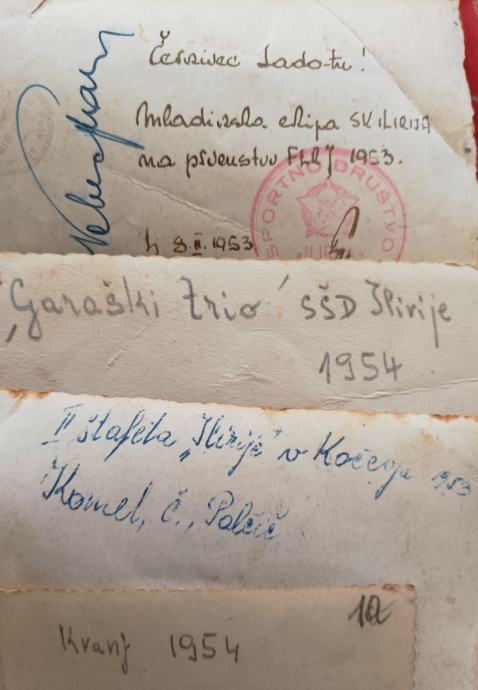 Červivec Lado-tu!
Mladinska ekipa SK ILIRIJA
na prvenstvu FLRJ 1953.
8. II. 1953
ŠPORTNO DRUŠTVO
„Garaški trio“ SŠD Ilirije
1954
II štafeta „Ilirije“ v Kočevju 1953
Komel, Č., Polčič
10
Kranj 1954